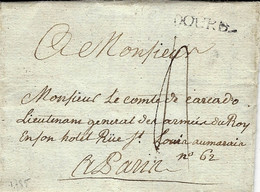 DOURD
A Monsieur
Monsieur Le comte de carcado
Lieutenant general des armées du Roy
En son hotel Rüe St Louis au marais
n° 62
A Paris